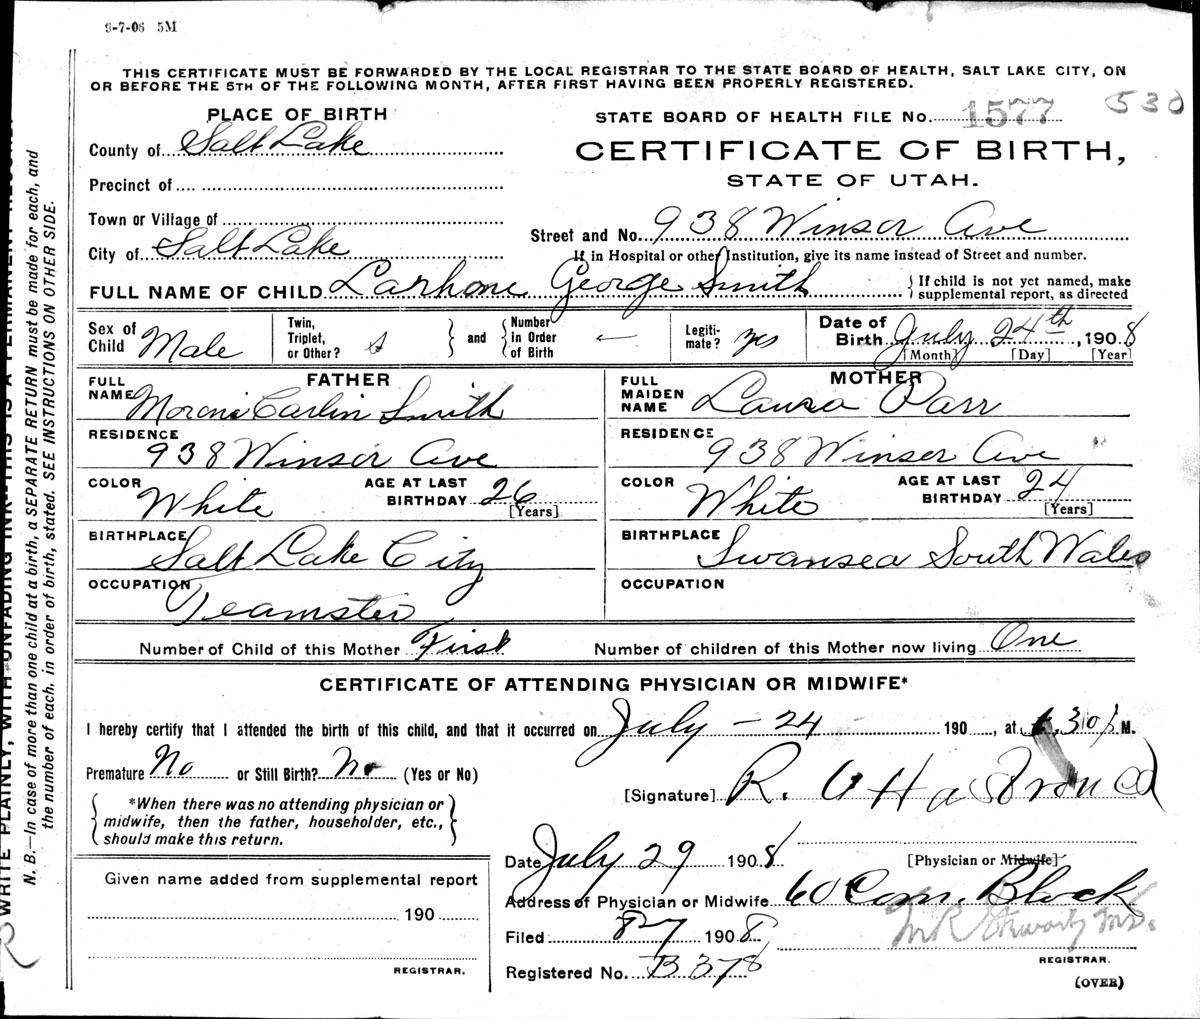 9-7-06 5M
THIS CERTIFICATE MUST BE FORWARDED BY THE LOCAL REGISTRAR TO THE STATE BOARD OF HEALTH, SALT LAKE CITY, ON
OR BEFORE THE 5TH OF THE FOLLOWING MONTH, AFTER FIRST HAVING BEEN PROPERLY REGISTERED.
530
PLACE OF BIRTH
STATE BOARD OF HEALTH FILE No. 1577
County of Salt Lake
CERTIFICATE OF BIRTH,
STATE OF UTAH.
Precinct of
Town or Village of
Street and No. 938 Winsor Ave
City of Salt Lake
If in Hospital or other Institution, give its name instead of Street and number.
FULL NAME OF CHILD Larhone George Smith
{If child is not yet named, make
supplemental report, as directed
Sex of Child Male
Twin, Triplet, or Other?
} and { Number in Order of Birth —
Legitimate? yes
Date of Birth July 24th, 1908
[Month] [Day] [Year]
FATHER
FULL NAME Moroni Carlin Smith
RESIDENCE 938 Winsor Ave
COLOR White
AGE AT LAST BIRTHDAY 26
[Years]
BIRTHPLACE Salt Lake City
OCCUPATION Teamster
MOTHER
FULL MAIDEN NAME Laura Parr
RESIDENCE 938 Winser Ave
COLOR White
AGE AT LAST BIRTHDAY 24
[Years]
BIRTHPLACE Swansea South Wales
OCCUPATION
Number of Child of this Mother First
Number of children of this Mother now living One
CERTIFICATE OF ATTENDING PHYSICIAN OR MIDWIFE*
I hereby certify that I attended the birth of this child, and that it occurred on July - 24 190 , at 30 P M.
Premature No or Still Birth? No (Yes or No)
[Signature] R.
{*When there was no attending physician or
midwife, then the father, householder, etc.,
should make this return.}
Date July 29 1908
[Physician or Midwife]
Address of Physician or Midwife 60 Com. Block
Given name added from supplemental report
190
REGISTRAR.
Filed 8 7 1908
M.D.
REGISTRAR.
Registered No. B 378
(OVER)
WRITE PLAINLY, WITH UNFADING INK—THIS IS A PERMANENT RECORD.
N. B.—In case of more than one child at a birth, a SEPARATE RETURN must be made for each, and
the number of each, in order of birth, stated. SEE INSTRUCTIONS ON OTHER SIDE.